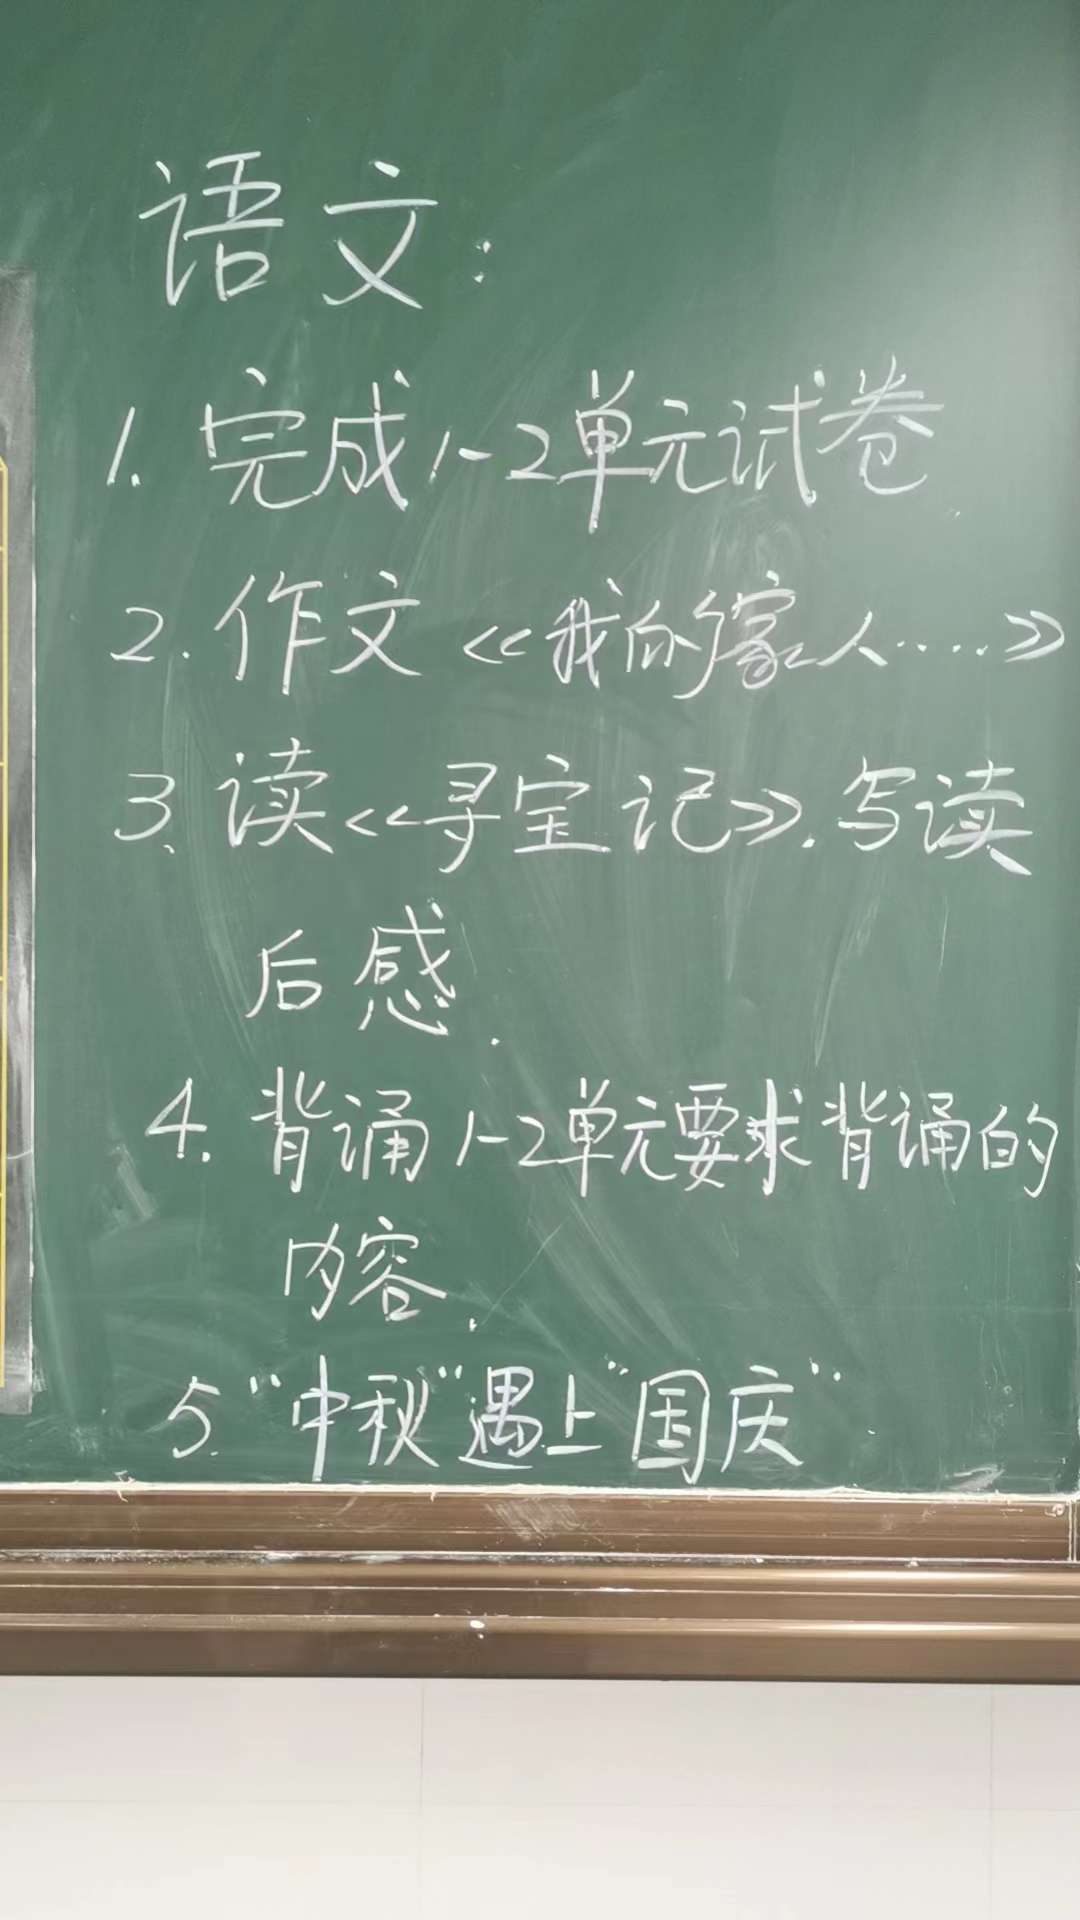 语文:
1. 完成1-2单元试卷
2. 作文<<我的家人……>>
3. 读<<寻宝记>>.写读
后感.
4. 背诵1-2单元要求背诵的
内容.
5."中秋"遇上"国庆"